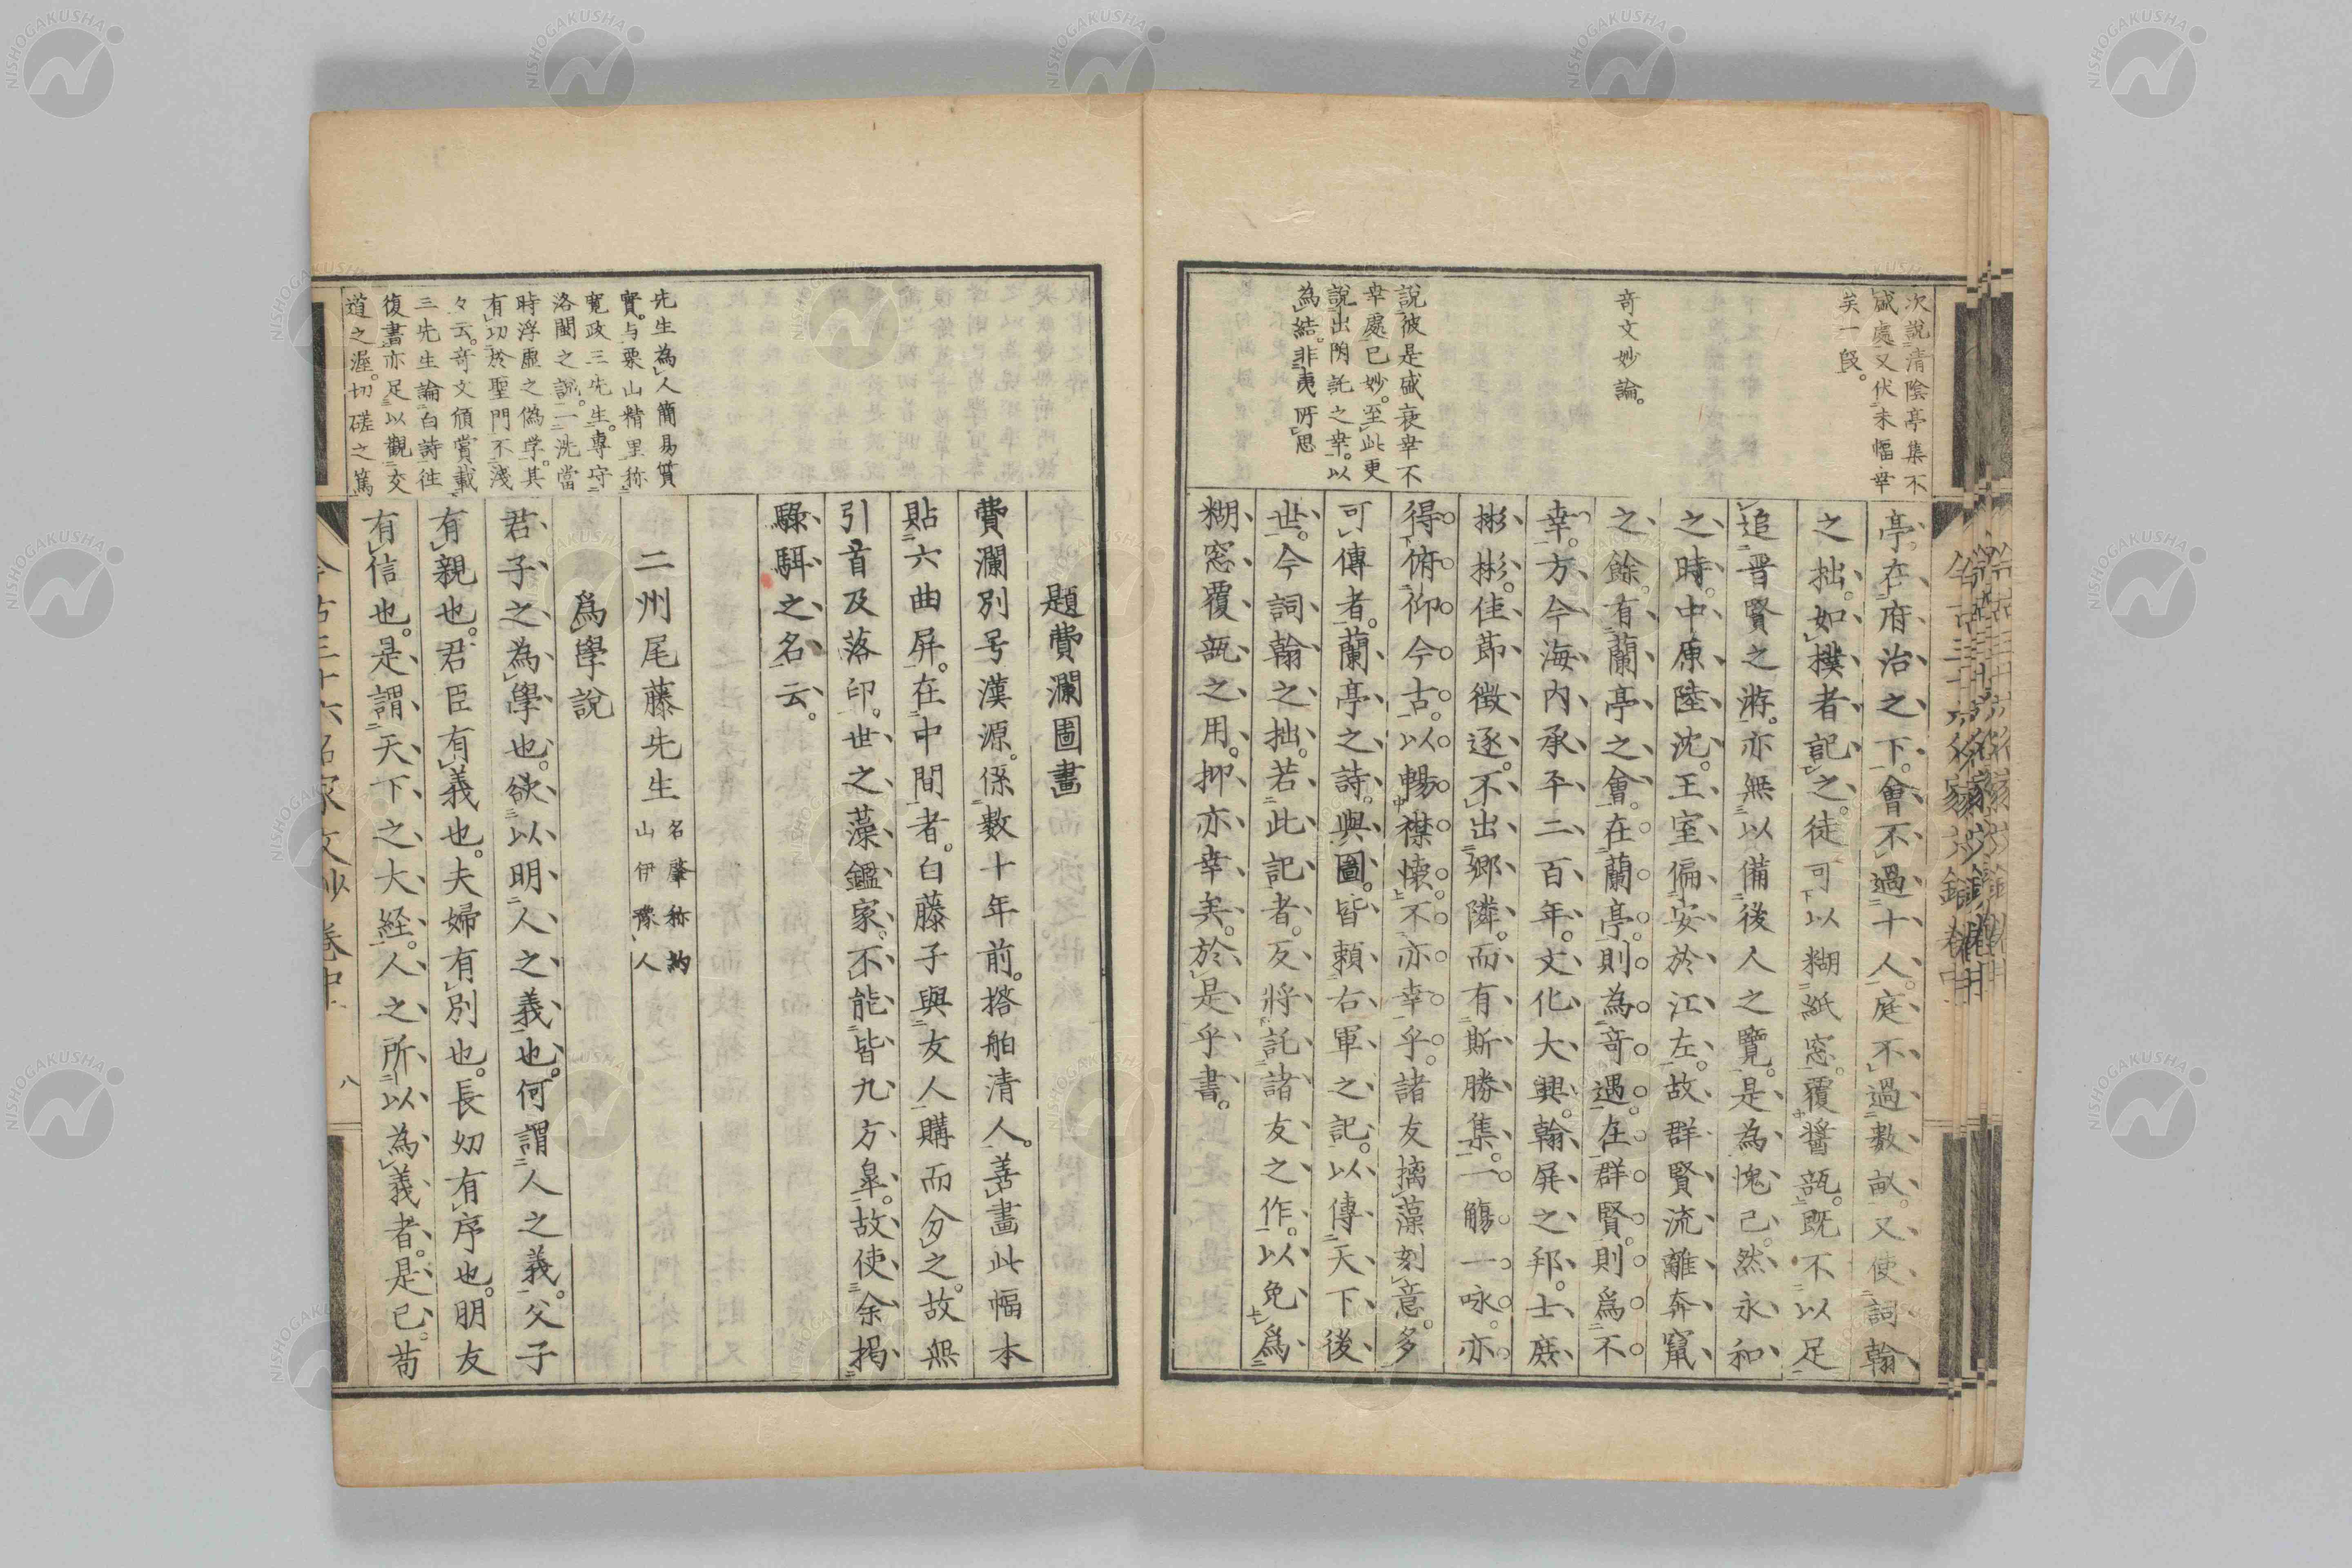 次說清陰亭集不
盛處又伏末幅幸
矣一段。
奇文妙論。
說彼是盛衰幸不
幸處已妙。至此更
說出閑託之幸。以
為結。非夷所思
亭在府治之下。會不過十人。庭不過數畝。又使詞翰
之拙。如樸者記之。徒可以糊紙窓。覆醬瓿。既不以足
追晋賢之游。亦無以備後人之覽。是為愧已。然永和
之時。中原陸沈。王室偏安於江左。故群賢流離奔竄
之餘。有蘭亭之會。在蘭亭。則為奇遇。在群賢。則爲不
幸。方今海内承平二百年。文化大興。翰屏之邦。士庶
彬彬。佳莭徴逐。不出郷隣。而有斯勝集。一觴一咏。亦
得俯仰今古。以暢襟懐。不亦幸乎。諸友摛藻刻意。多
可傳者。蘭亭之詩。與圖。皆頼右軍之記。以傳天下後
世。今詞翰之拙。若此記者。反將託諸友之作。以免爲
糊窓覆瓿之用。抑亦幸矣。於是乎書。
題費瀾圖畫
費瀾別号漢源。係數十年前。搭舶清人。善畫此幅本
貼六曲屏。在中間者。白藤子與友人購而分之。故無
引首及落印。世之藻鑑家。不能皆九方皐。故使余掲
騄駬之名云。
先生為人簡易質
實。与栗山精里称
寛政三先生。専守
洛閩之說。一洗當
時浮虚之偽学。其
有功於聖門不淺
々云。奇文頒賞載
三先生論白詩往
復書亦足以觀交
道之渥。切磋之篤
二州尾藤先生 名肇称約山伊豫人
爲學說
君子之為學也。欲以明人之義也。何謂人之義。父子
有親也。君臣有義也。夫婦有別也。長幼有序也。朋友
有信也。是謂天下之大経。人之所以為義者。是已。苟
今古三十六名家文抄 巻中 八